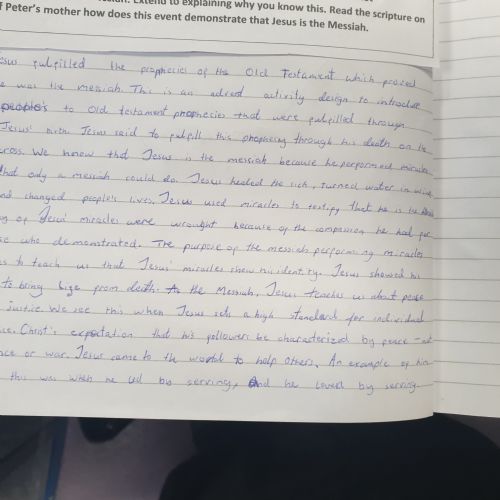 Extend to explaining why you know this. Read the scripture on
f Peter's mother how does this event demonstrate that Jesus is the Messiah.
esus fulfilled the prophecies of the Old Testament which proved
e was the messiah. This is an advent activity design to introduce
people's to Old testament prophecies that were fulfilled through
Jesus' birth Jesus said to fulfill this prophecy through his death on the
cross. We know that Jesus is the messiah because he performed miracles
that only a messiah could do. Jesus healed the sick, turned water in wine
and changed people's lives. Jesus used miracles to testify that he is the
of Jesus' miracles were wrought because of the compassion he had for
who demonstrated. The purpose of the messiah performing miracles
to teach us that Jesus' miracles show his identity. Jesus showed his
to bring life from death. As the Messiah, Jesus teaches us about peace
justice. We see this when Jesus sets a high standard for individual
Christ's expectation that his follower be characterized by peace - not
or war. Jesus came to the world to help others. An example of him
this was when he led by serving, and he loved by serving